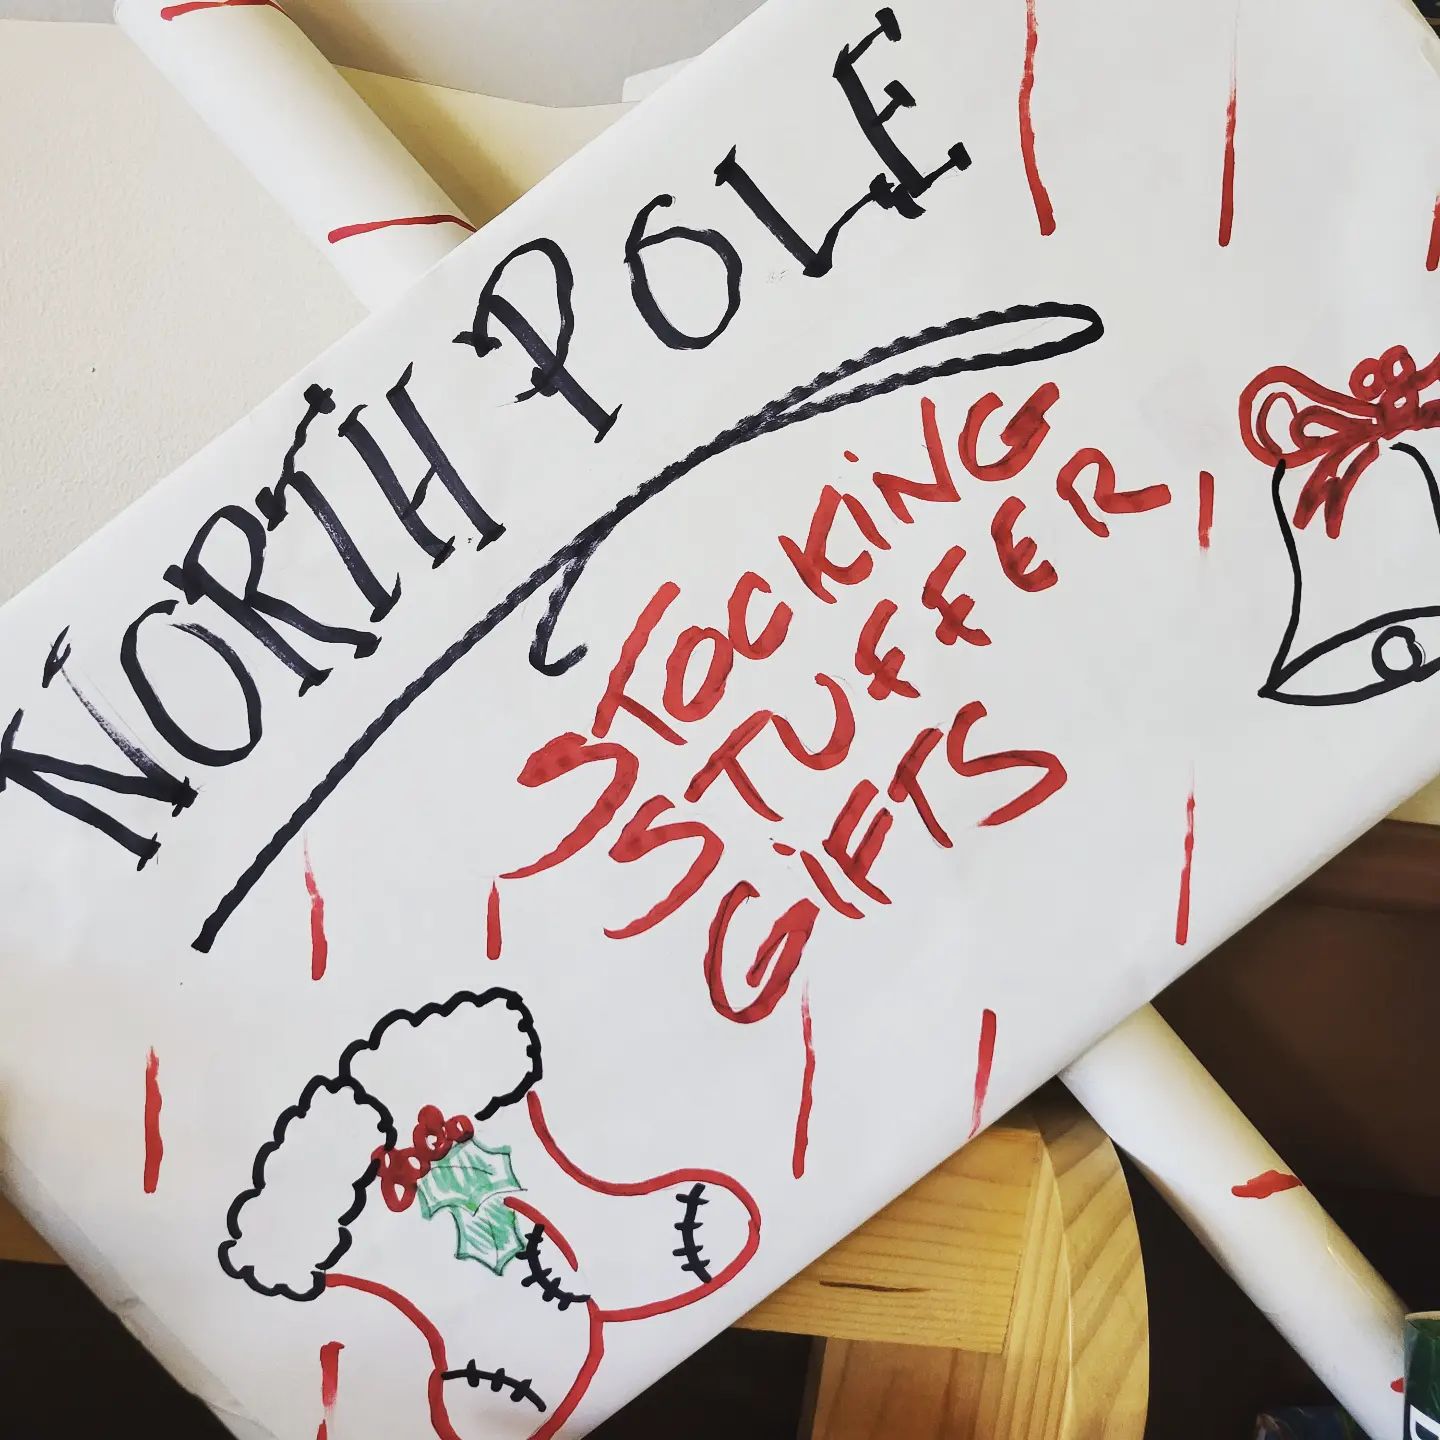 NORTH POLE
STOCKING
STUFFER
GIFTS